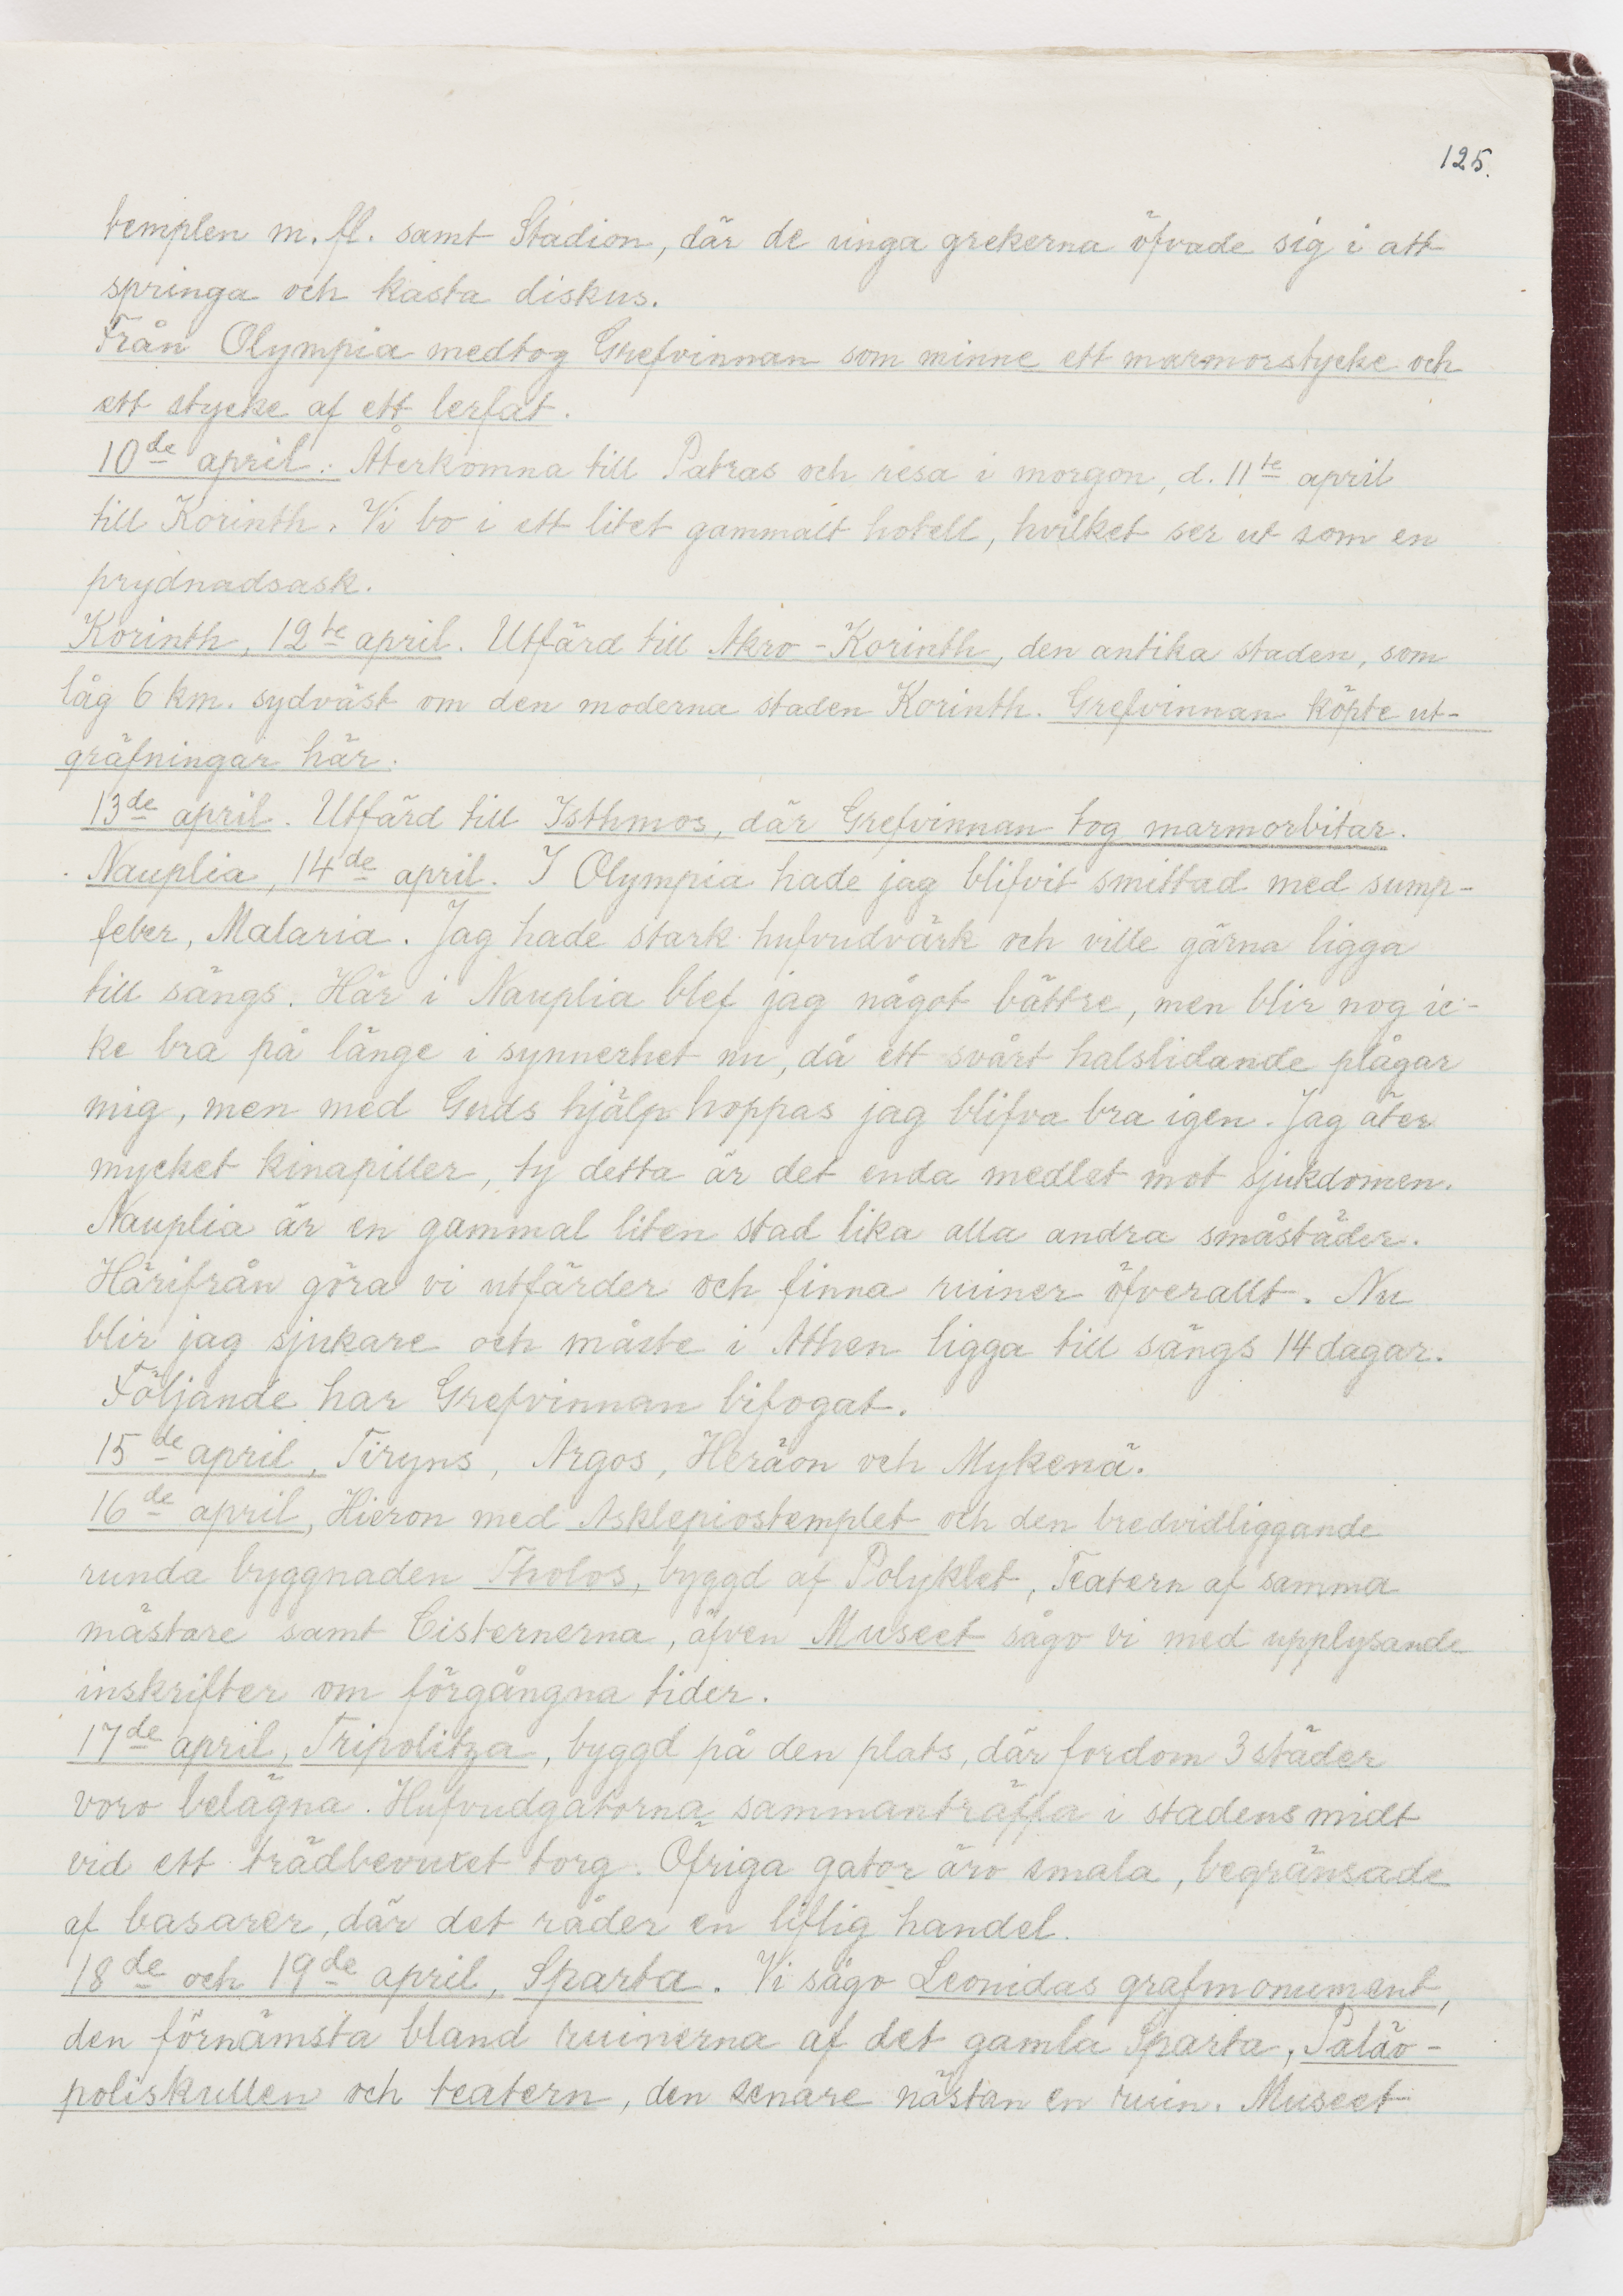 125.
templen m. fl. samt Stadion, där de unga grekerna öfvade sig i att
springa och kasta diskus.
Från Olympia medtog Grefvinnan som minne ett marmorstycke och
ett stycke af ett lerfat.
10de april. Återkomna till Patras och resa i morgon, d. 11te april
till Korinth. Vi bo i ett litet gammalt hotell, hvilket ser ut som en
prydnadsask.
Korinth, 12te april. Utfärd till Akro-Korinth, den antika staden, som
låg 6 km. sydväst om den moderna staden Korinth. Grefvinnan köpte ut-
gräfningar här.
13de april. Utfärd till Isthmos, där Grefvinnan tog marmorbitar.
Nauplia, 14de april. I Olympia hade jag blifvit smittad med sump-
feber, Malaria. Jag hade stark hufvudvärk och ville gärna ligga
till sängs. Här i Nauplia blef jag något bättre, men blir nog ic-
ke bra på länge i synnerhet nu, då ett svårt halslidande plågar
mig, men med Guds hjälp hoppas jag blifva bra igen. Jag äter
mycket kinapiller, ty detta är det enda medlet mot sjukdomen.
Nauplia är en gammal liten stad lika alla andra småstäder.
Härifrån göra vi utfärder och finna ruiner öfverallt. Nu
blir jag sjukare och måste i Athen ligga till sängs 14 dagar.
Följande har Grefvinnan bifogat.
15de april, Tiryns, Argos, Heräon och Mykenä.
16de april, Hieron med Asklepiostemplet och den bredvidliggande
runda byggnaden Tholos, byggd af Polyklet, Teatern af samma
mästare samt Cisternerna, äfven Museet sågo vi med upplysande
inskrifter om förgångna tider.
17de april, Tripolitza, byggd på den plats, där fordom 3 städer
voro belägna. Hufvudgatorna sammanträffa i stadens midt
vid ett trädbevuxet torg. Öfriga gator äro smala, begränsade
af basarer, där det råder en liflig handel.
18de och 19de april, Sparta. Vi sågo Leonidas grafmonument,
den förnämsta bland ruinerna af det gamla Sparta, Paläo-
poliskullen och teatern, den senare nästan en ruin. Museet